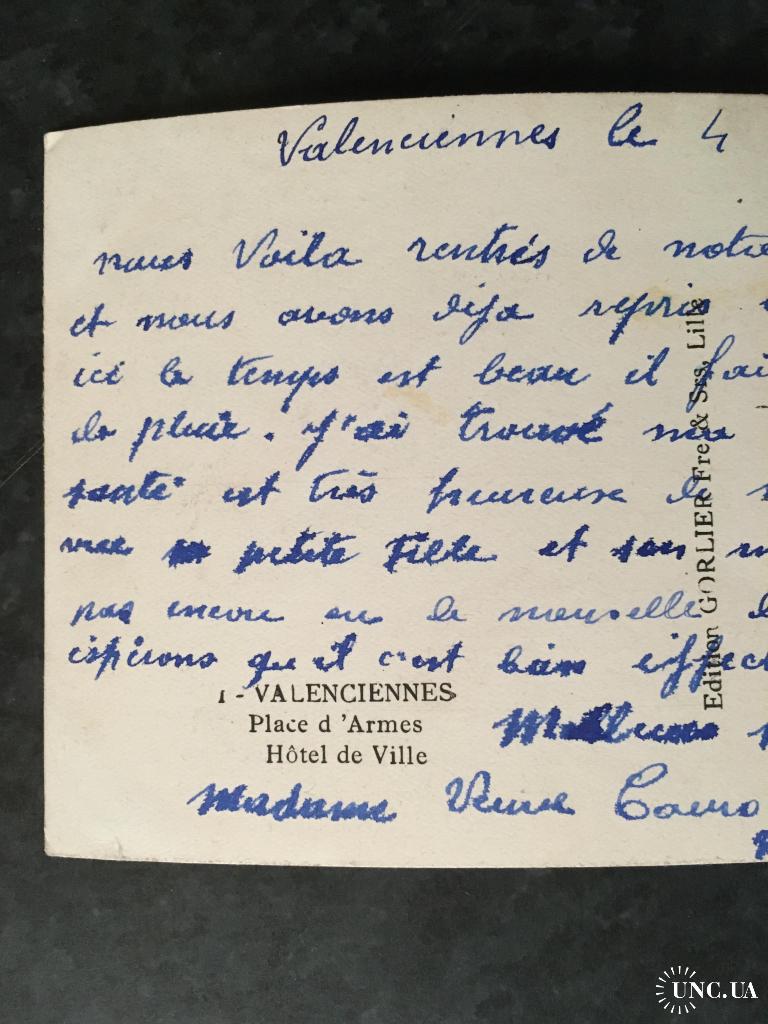 Valenciennes le 4
nous Voila rentrés de notre
et nous avons deja repris
ici le temps est beau il fai
de pluie. J'ai trouvé ma
santé est très heureuse de
petite fille et son
pas encore eu de nouvelle
espérons qu'il c'est bien effect
1 - VALENCIENNES
Place d'Armes
Hôtel de Ville
Madame Veuve
Edition GORLIER Fre & Srs, Lille
UNC.UA